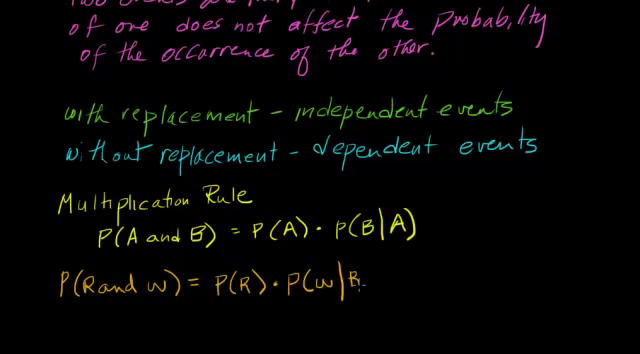 of one does not affect the probability
of the occurrence of the other.
with replacement - independent events
without replacement - dependent events
Multiplication Rule
P(A and B) = P(A) · P(B|A)
P(R and W) = P(R) · P(W|R